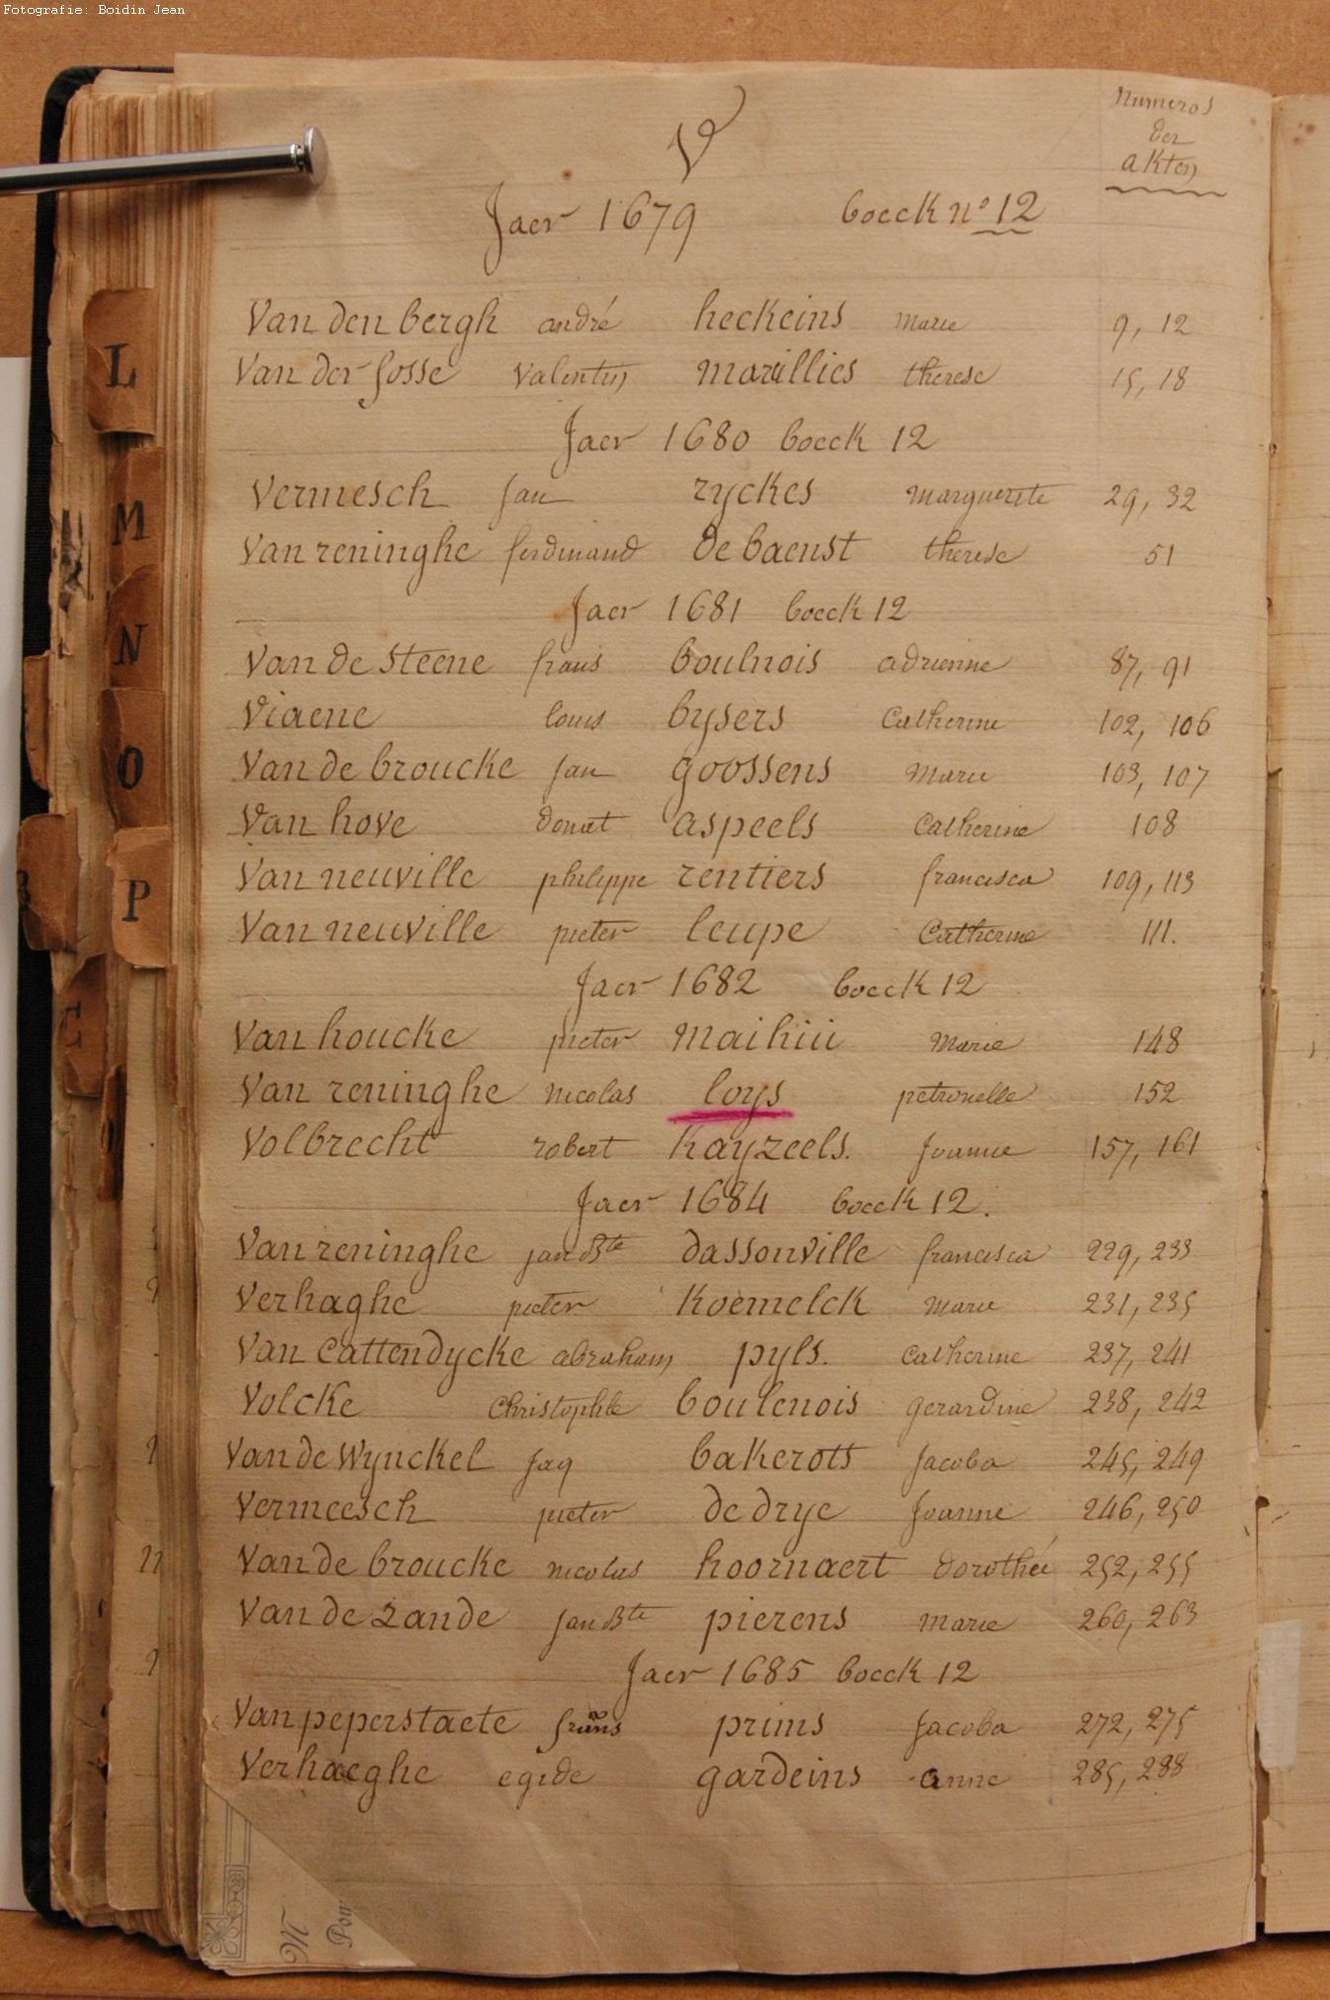 Fotografie: Boidin Jean
Numeros
der
akten
V
Jaer 1679 boeck nº 12
Van den bergh andré heckeins marie 9, 12
Van der fosse valentin marillies therese 15, 18
Jaer 1680 boeck 12
Vermesch jan ryckes marguerite 29, 32
Van reninghe ferdinand de baenst therese 51
Jaer 1681 boeck 12
Van de steene frans boulnois adrienne 87, 91
Viaene louis bysers Catherine 102, 106
Van de broucke jan goossens marie 103, 107
Van hove donat aspeels Catherine 108
Van neuville philippe rentiers francisca 109, 113
Van neuville pieter leupe Catherine 111.
Jaer 1682 boeck 12
Van houcke pieter maihiu Marie 148
Van reninghe nicolas loys petronelle 152
Volbrecht robert Kayzeels. Joanne 157, 161
Jaer 1684 boeck 12.
Van reninghe jan Bte dassonville francisca 229, 233
Verhaghe pieter Koemelck marie 231, 235
Van Cattendycke abraham pyls. Catherine 237, 241
Volcke Christophle boulenois gerardine 238, 242
Van de Wynckel jaq bakerots Jacoba 245, 249
Vermeesch pieter de drye Joanne 246, 250
Van de broucke nicolas hoornaert dorothée 252, 255
Van de Zande jan Bte pierens marie 260, 263
Jaer 1685 boeck 12
Van peperstaete frans prims Jacoba 272, 275
Verhaeghe egide gardeins anne 285, 288
L
M
N
O
P
M
Pou